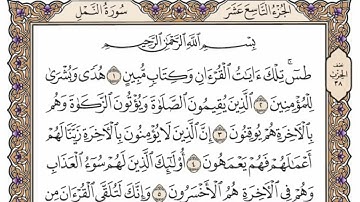 الجزء التاسع عشر
سورة النمل
بِسْمِ اللَّهِ الرَّحْمَٰنِ الرَّحِيمِ
طسٓ ۚ تِلْكَ ءَايَٰتُ ٱلْقُرْءَانِ وَكِتَابٍ مُّبِينٍ ١ هُدًى وَبُشْرَىٰ
لِلْمُؤْمِنِينَ ٢ ٱلَّذِينَ يُقِيمُونَ ٱلصَّلَوٰةَ وَيُؤْتُونَ ٱلزَّكَوٰةَ وَهُم
بِٱلْءَاخِرَةِ هُمْ يُوقِنُونَ ٣ إِنَّ ٱلَّذِينَ لَا يُؤْمِنُونَ بِٱلْءَاخِرَةِ زَيَّنَّا لَهُمْ
أَعْمَٰلَهُمْ فَهُمْ يَعْمَهُونَ ٤ أُو۟لَٰٓئِكَ ٱلَّذِينَ لَهُمْ سُوٓءُ ٱلْعَذَابِ
وَهُمْ فِى ٱلْءَاخِرَةِ هُمُ ٱلْأَخْسَرُونَ ٥ وَإِنَّكَ لَتُلَقَّى ٱلْقُرْءَانَ مِن